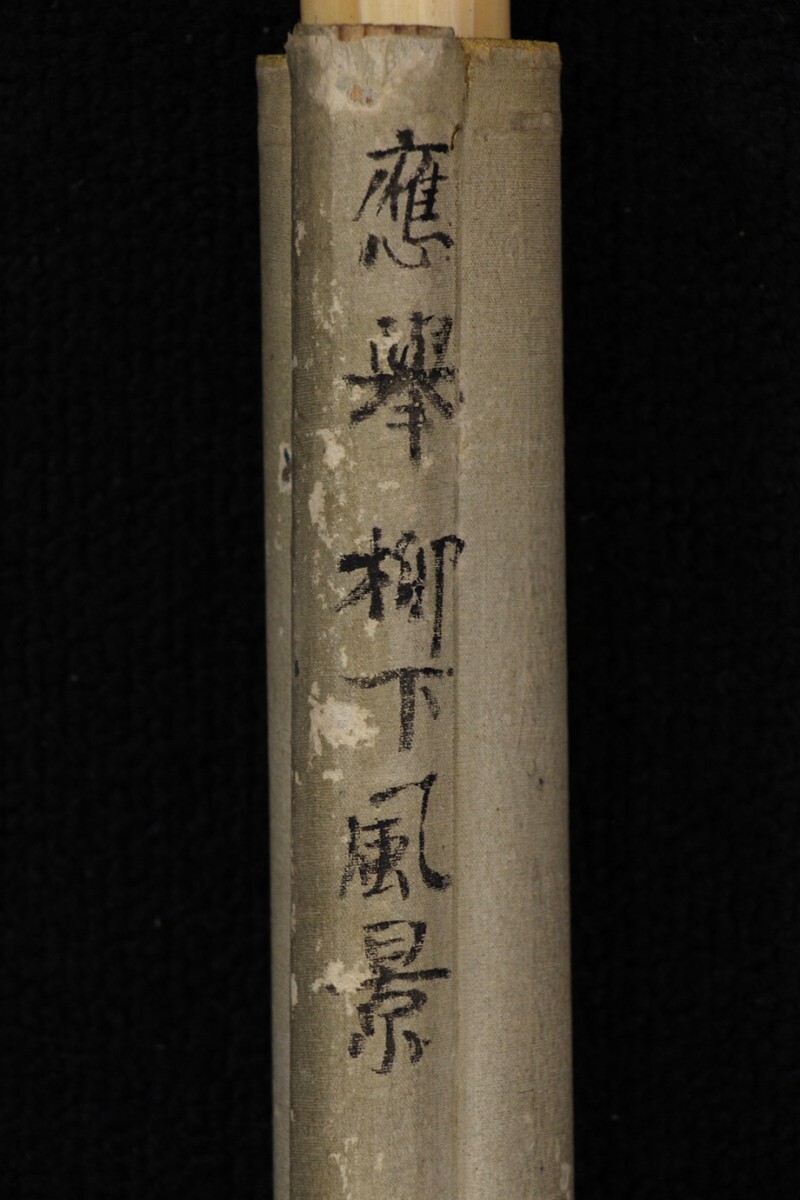 應擧柳下風景